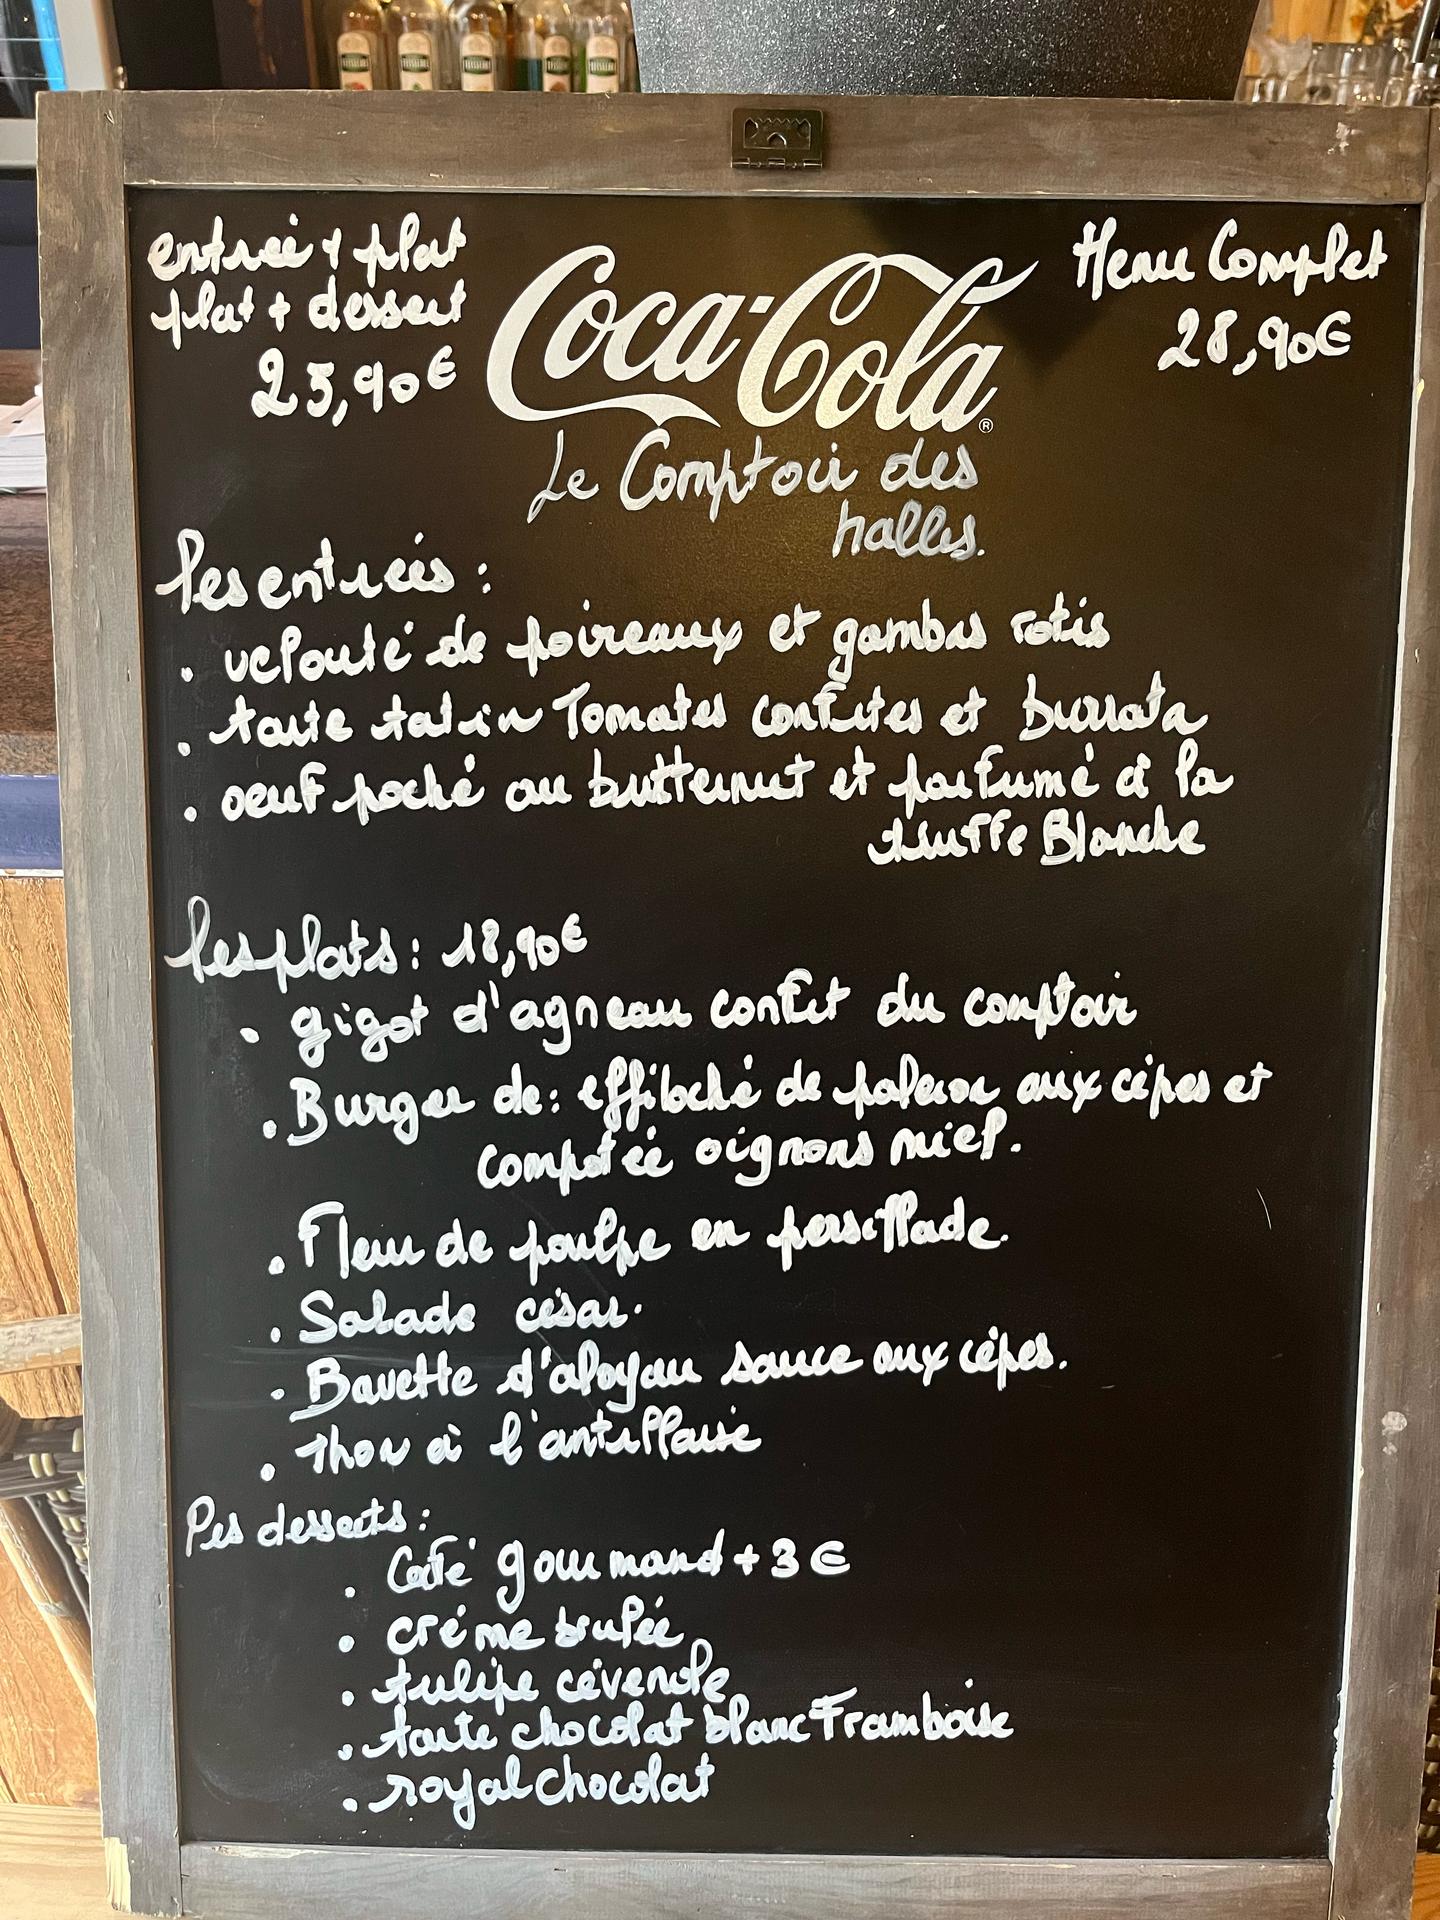 entrée + plat
plat + dessert
25,90€
Coca-Cola®
Menu Complet
28,90€
Le Comptoir des
halles.
les entrées :
. velouté de poireaux et gambas rotis
. tarte tatin Tomates confites et burrata
. oeuf poché au butternut et parfumé à la
truffe Blanche
les plats : 18,90€
. gigot d'agneau confit du comptoir
. Burger de : effiloché de paleron aux cèpes et
compotée oignons miel.
. Fleur de poulpe en persillade.
. Salade césar.
. Bavette d'aloyau sauce aux cèpes.
. Thon à l'antillaise
les desserts :
. Café gourmand + 3€
. créme brulée
. tulipe cévenole
. tarte chocolat blanc Framboise
. royal chocolat